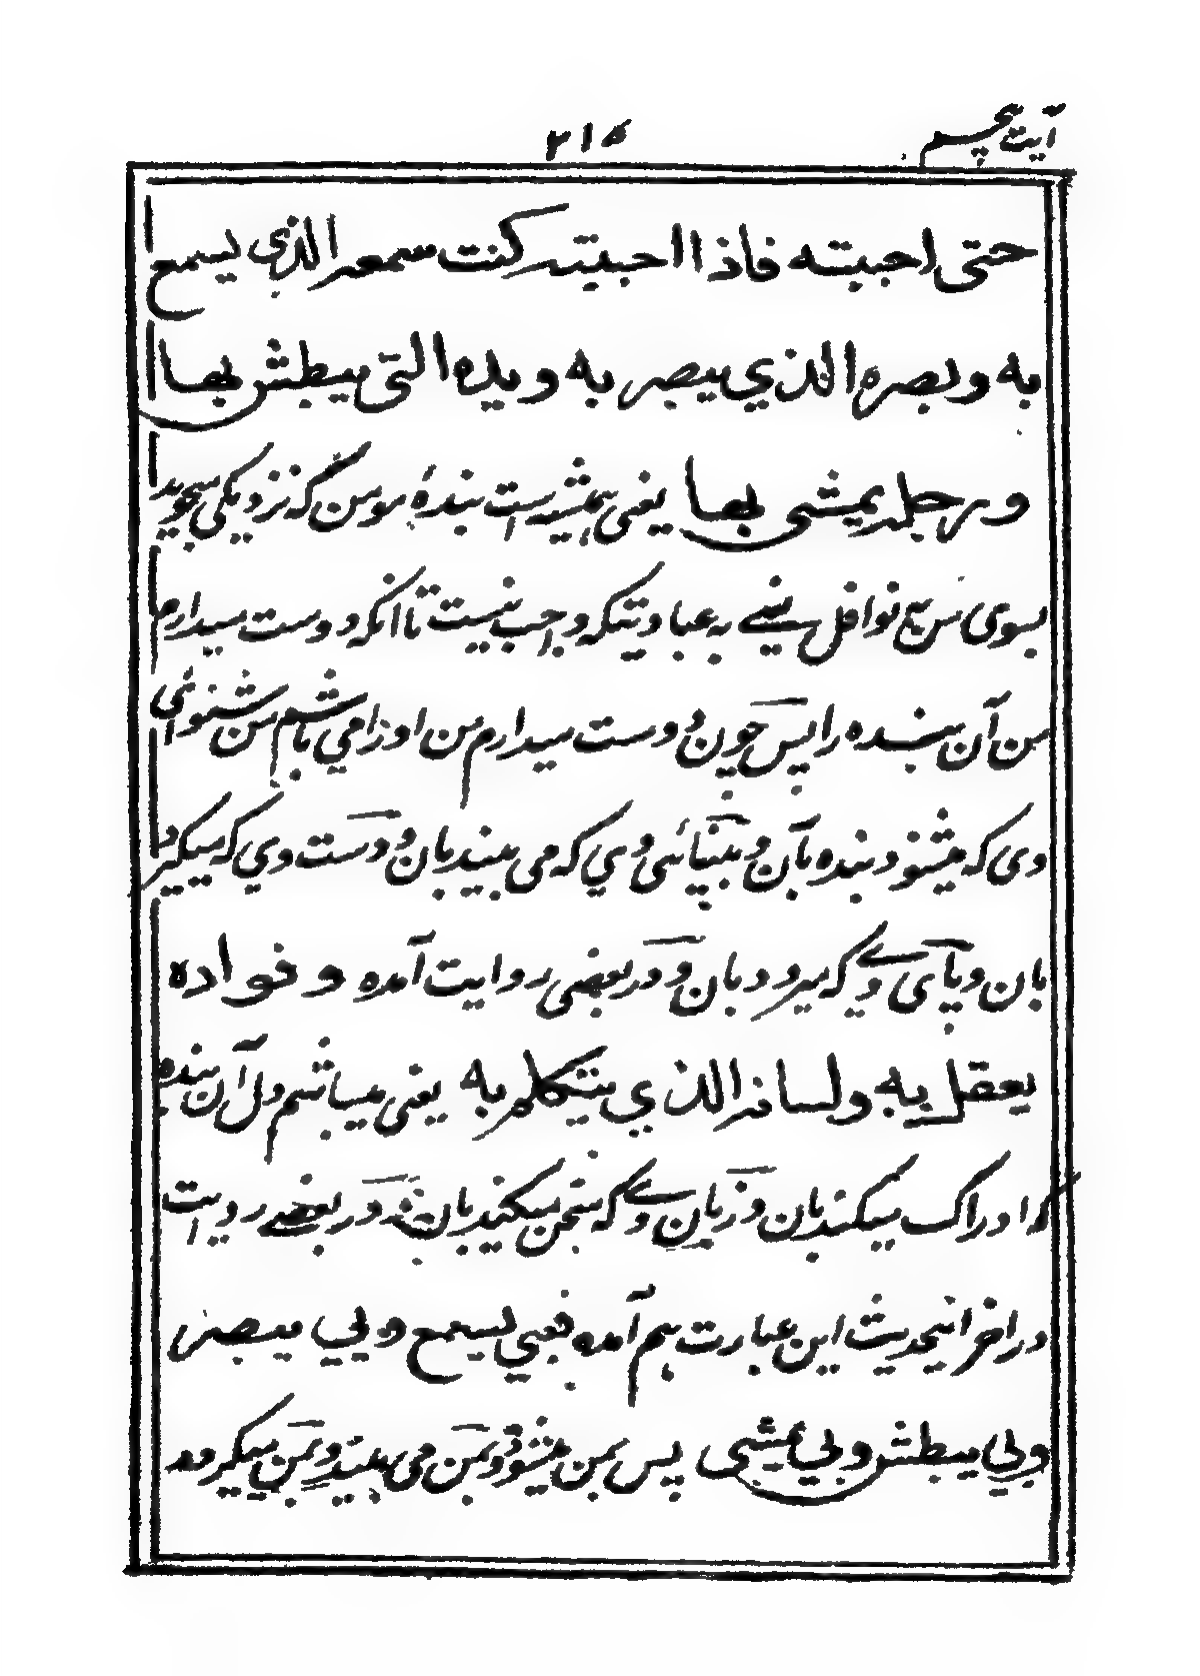 آیت پنجم
۲۱۵
حتی احببته فاذا احببته کنت سمعه الذي یسمع
به وبصره الذي یبصر به ویده التی یبطش بها
ورجله یمشی بها یعنی همیشه است بندهٔ مومن که نزدیکی میجوید
بسوی من به نوافل یعنے به عبادتیکه واجب نیست تا آنکه دوست میدارم
من آن بنده را پس چون دوست میدارم من او را می باشم من شنوائی
وی که میشنود بنده بآن و بینائی وي که می بیند بان و دست وي که میگیرد
بان و پای وے که میرود بان و در بعضی روایت آمده و فواده
یعقل به ولسانه الذي یتکلم به یعنی میباشم دل آن بنده
که ادراک میکند بان و زبان وے که سخن میکند بان و در بعضے روایت
در اخر اینحدیث این عبارت هم آمده فبي یسمع وبي یبصر
وبي یبطش وبي یمشی پس بمن میشنود و بمن می بیند و بمن میگیرد